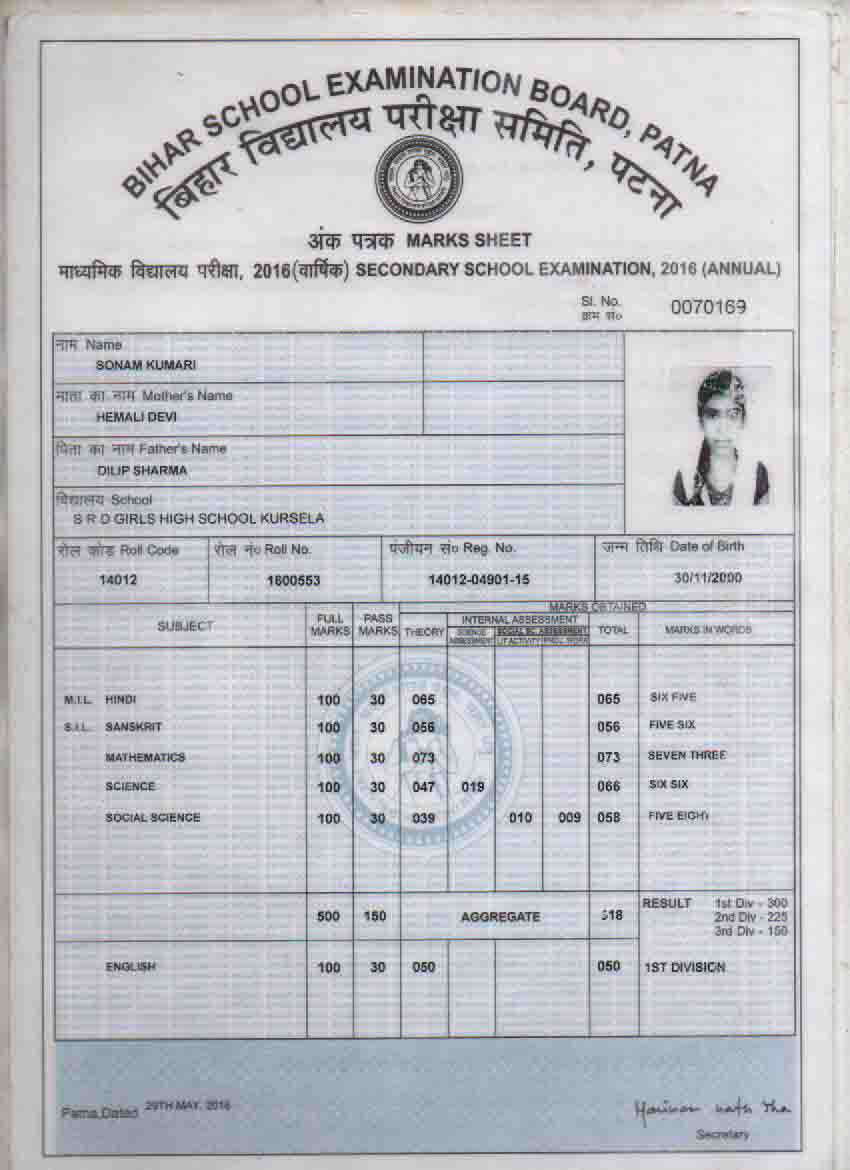 BIHAR SCHOOL EXAMINATION BOARD, PATNA
बिहार विद्यालय परीक्षा समिति, पटना
अंक पत्रक MARKS SHEET
माध्यमिक विद्यालय परीक्षा, 2016(वार्षिक) SECONDARY SCHOOL EXAMINATION, 2016 (ANNUAL)
Sl. No. 0070169
क्रम सं०
नाम Name
SONAM KUMARI
माता का नाम Mother's Name
HEMALI DEVI
पिता का नाम Father's Name
DILIP SHARMA
विद्यालय School
S R D GIRLS HIGH SCHOOL KURSELA
रोल कोड Roll Code रोल नं० Roll No. पंजीयन सं० Reg. No. जन्म तिथि Date of Birth
14012 1600553 14012-04901-15 30/11/2000
MARKS OBTAINED
SUBJECT FULL MARKS PASS MARKS THEORY INTERNAL ASSESSMENT TOTAL MARKS IN WORDS
SCIENCE ASSESSMENT SOCIAL SC. ASSESSMENT
LIT ACTIVITY PROJ. WORK
M.I.L. HINDI 100 30 065 065 SIX FIVE
S.I.L. SANSKRIT 100 30 056 056 FIVE SIX
MATHEMATICS 100 30 073 073 SEVEN THREE
SCIENCE 100 30 047 019 066 SIX SIX
SOCIAL SCIENCE 100 30 039 010 009 058 FIVE EIGHT
500 150 AGGREGATE 318 RESULT 1st Div - 300
2nd Div - 225
3rd Div - 150
ENGLISH 100 30 050 050 1ST DIVISION
Patna,Dated 29TH MAY, 2016
Secretary